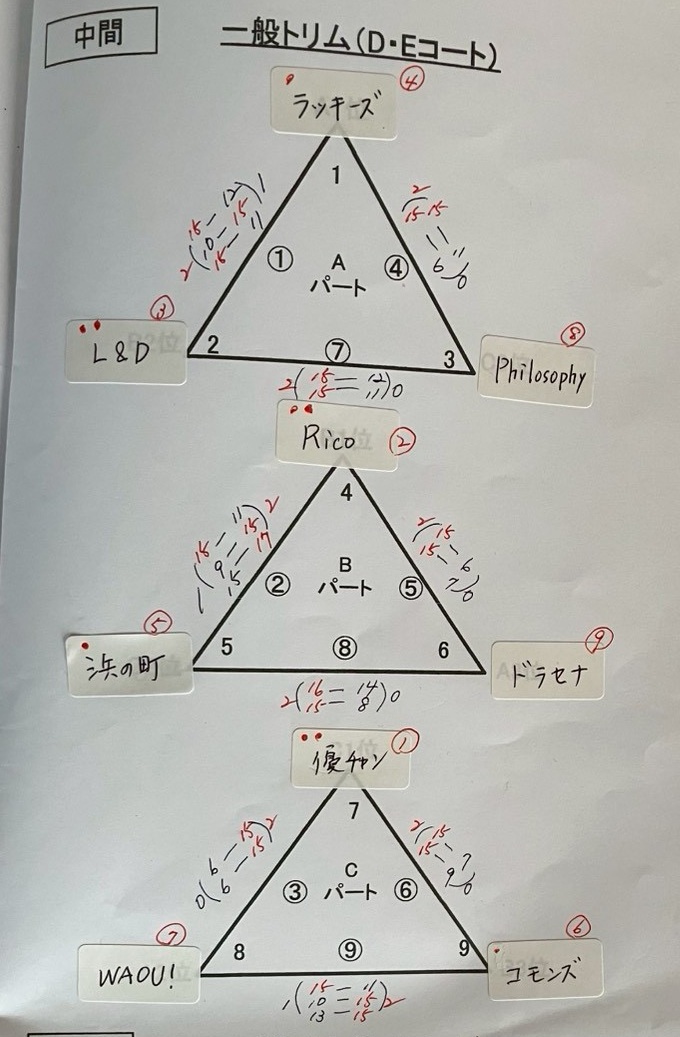 中間
一般トリム(D・Eコート)
ラッキーズ
④
1
2(15-12)1
10-15
15-11
2(15-11)0
15-6
①
A
パート
④
L&D
③
2
⑦
3
Philosophy
⑧
2(15-12)0
15-11
Rico
②
4
1(15-11)2
9-15
15-17
2(15-6)0
15-7
②
B
パート
⑤
浜の町
⑤
5
⑧
6
ドラセナ
⑨
2(16-14)0
15-8
優チャン
①
7
0(6-15)2
6-15
2(15-7)0
15-9
③
C
パート
⑥
WAOU!
⑦
8
⑨
9
コモンズ
⑥
1(15-11)2
10-15
13-15